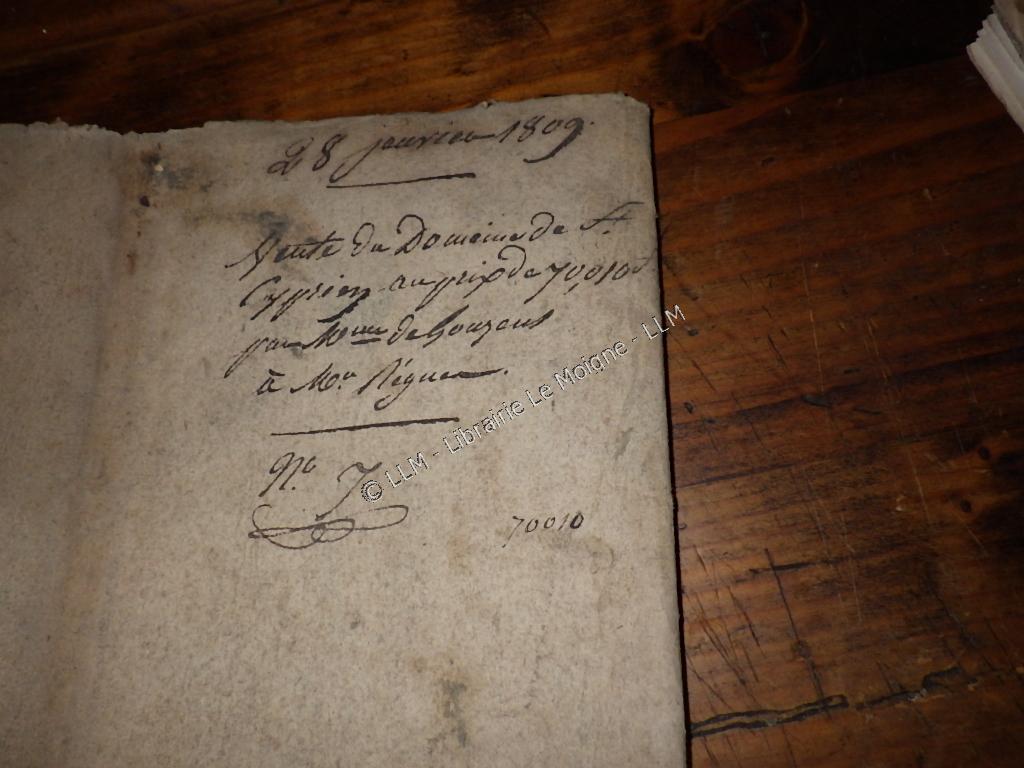 28 janvier 1809.
Vente du Domaine de St.
Cyprien au prix de 70,010
par Mme de
à Mr Réguer.
No. 7
70010
© LLM - Librairie Le Moigne - LLM